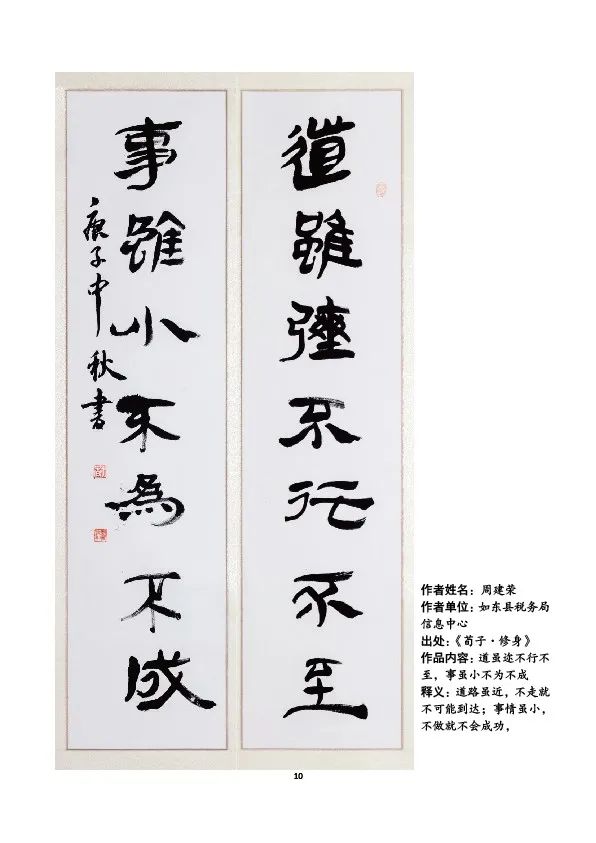 道雖不行不至
事雖小不為不成
庚子中秋書
作者姓名：周建荣
作者单位：如东县税务局
信息中心
出处：《荀子·修身》
作品内容：道虽迩不行不
至，事虽小不为不成
释义：道路虽近，不走就
不可能到达；事情虽小，
不做就不会成功，
10